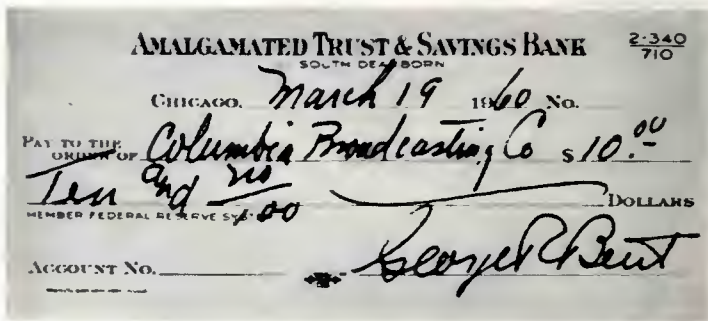 AMALGAMATED TRUST & SAVINGS BANK 2-340
SOUTH DEARBORN 710
CHICAGO, March 19 1960 No.
PAY TO THE
ORDER OF Columbia Broadcasting Co $ 10.00
Ten and no/100 DOLLARS
MEMBER FEDERAL RESERVE SYS
ACCOUNT No. George R Bent